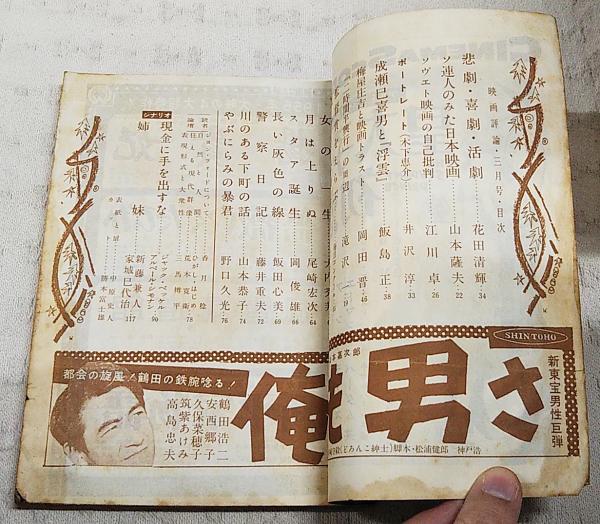 映画評論・三月号・目次
悲劇・喜劇・活劇……花田清輝 34
ソ連人のみた日本映画……山本薩夫 22
ソヴエト映画の自己批判……江川卓
ポートレート（木下恵介）……井沢淳 33
成瀬巳喜男と『浮雲』……飯島正 38
梅屋庄吉と映画トラスト……岡田晋 46
女の一生……大内秀
月は上りぬ……尾崎宏次 64
スタア誕生……岡俊雄 66
長い灰色の線……飯田心美 69
警察日記……藤井重夫 72
川のある下町の話……山本恭子 74
やぶにらみの暴君……野口久光 76
読者論壇
ジョン・フォードについて……香月稔
自然と人間……ひがしはじめ
表現形式と大衆性……三馬樽平
シナリオ
現金に手を出すな……ジャック・ベッケル 90
姉妹……新藤兼人
家城巳代治 117
勝本富士雄
SHINTOHO
新東宝男性巨弾
俺も男さ
(どろんこ紳士)
脚本・松浦健郎
神戸浩
都会の旋風！鶴田の鉄腕唸る！
鶴田浩二
安西郷子
久保菜穂子
筑紫あけみ
高島忠夫